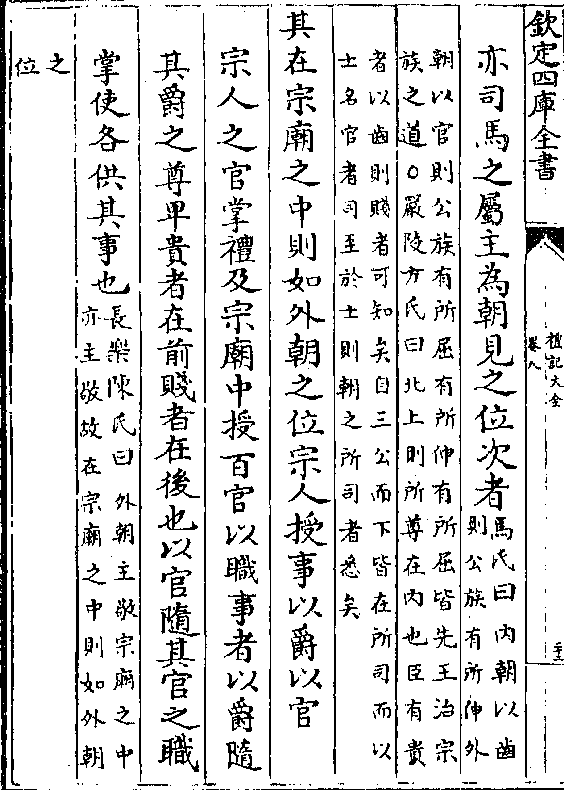 欽定四庫全書
禮記大全
卷八
亦司馬之屬主為朝見之位次者馬氏曰內朝以齒
則公族有所伸外
朝以官則公族有所屈有所伸有所屈皆先王治宗
族之道○嚴陵方氏曰北上則所尊在內也臣有貴
者以齒則賤者可知矣自三公而下皆在所司而以
士名官者司至於士則朝之所司者悉矣
其在宗廟之中則如外朝之位宗人授事以爵以官
宗人之官掌禮及宗廟中授百官以職事者以爵隨
其爵之尊卑貴者在前賤者在後也以官隨其官之職
掌使各供其事也長樂陳氏曰外朝主敬宗廟之中
亦主敬故在宗廟之中則如外朝
之
位